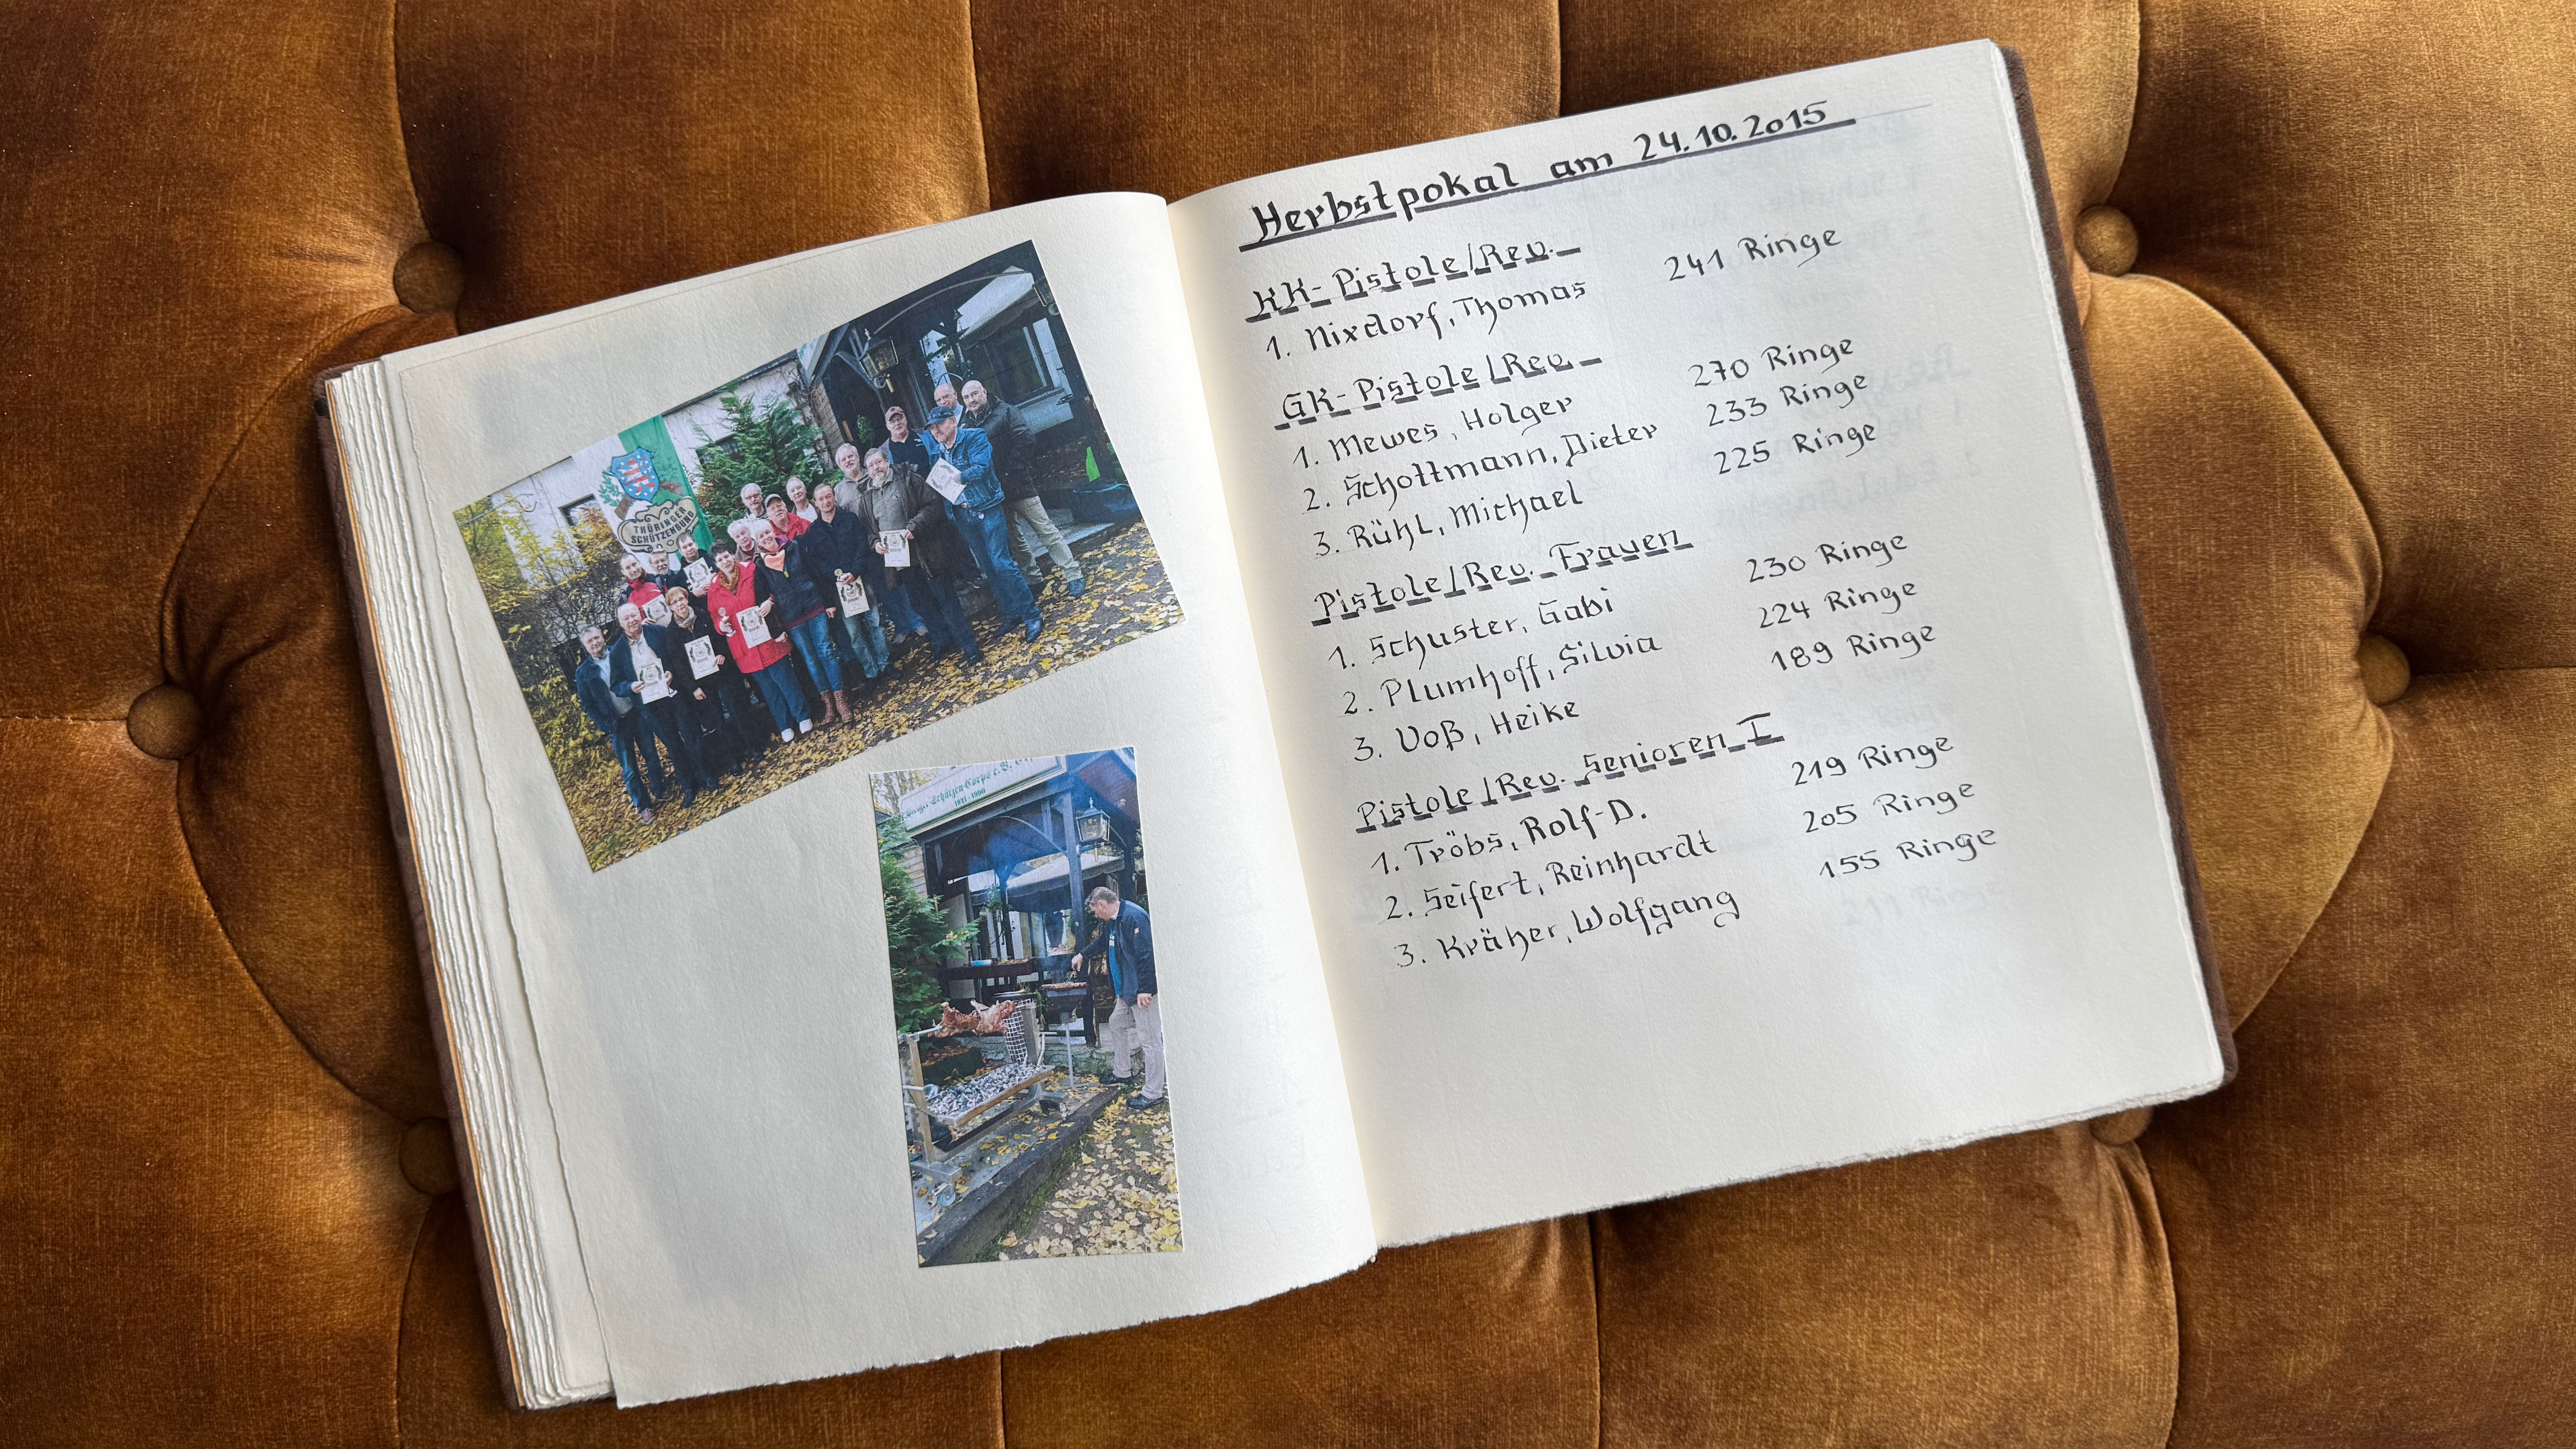 THÜRINGER
SCHÜTZENBUND
Schützen-Corps e.V.
Herbstpokal am 24.10.2015
KK-Pistole/Rev.
1. Nixdorf, Thomas 241 Ringe
GK-Pistole/Rev.
1. Mewes, Holger 270 Ringe
2. Schottmann, Dieter 233 Ringe
3. Rühl, Michael 225 Ringe
Pistole/Rev. Frauen
1. Schuster, Gabi 230 Ringe
2. Plumhoff, Silvia 224 Ringe
3. Voß, Heike 189 Ringe
Pistole/Rev. Senioren I
1. Tröbs, Rolf-D. 219 Ringe
2. Seifert, Reinhardt 205 Ringe
3. Kräher, Wolfgang 155 Ringe